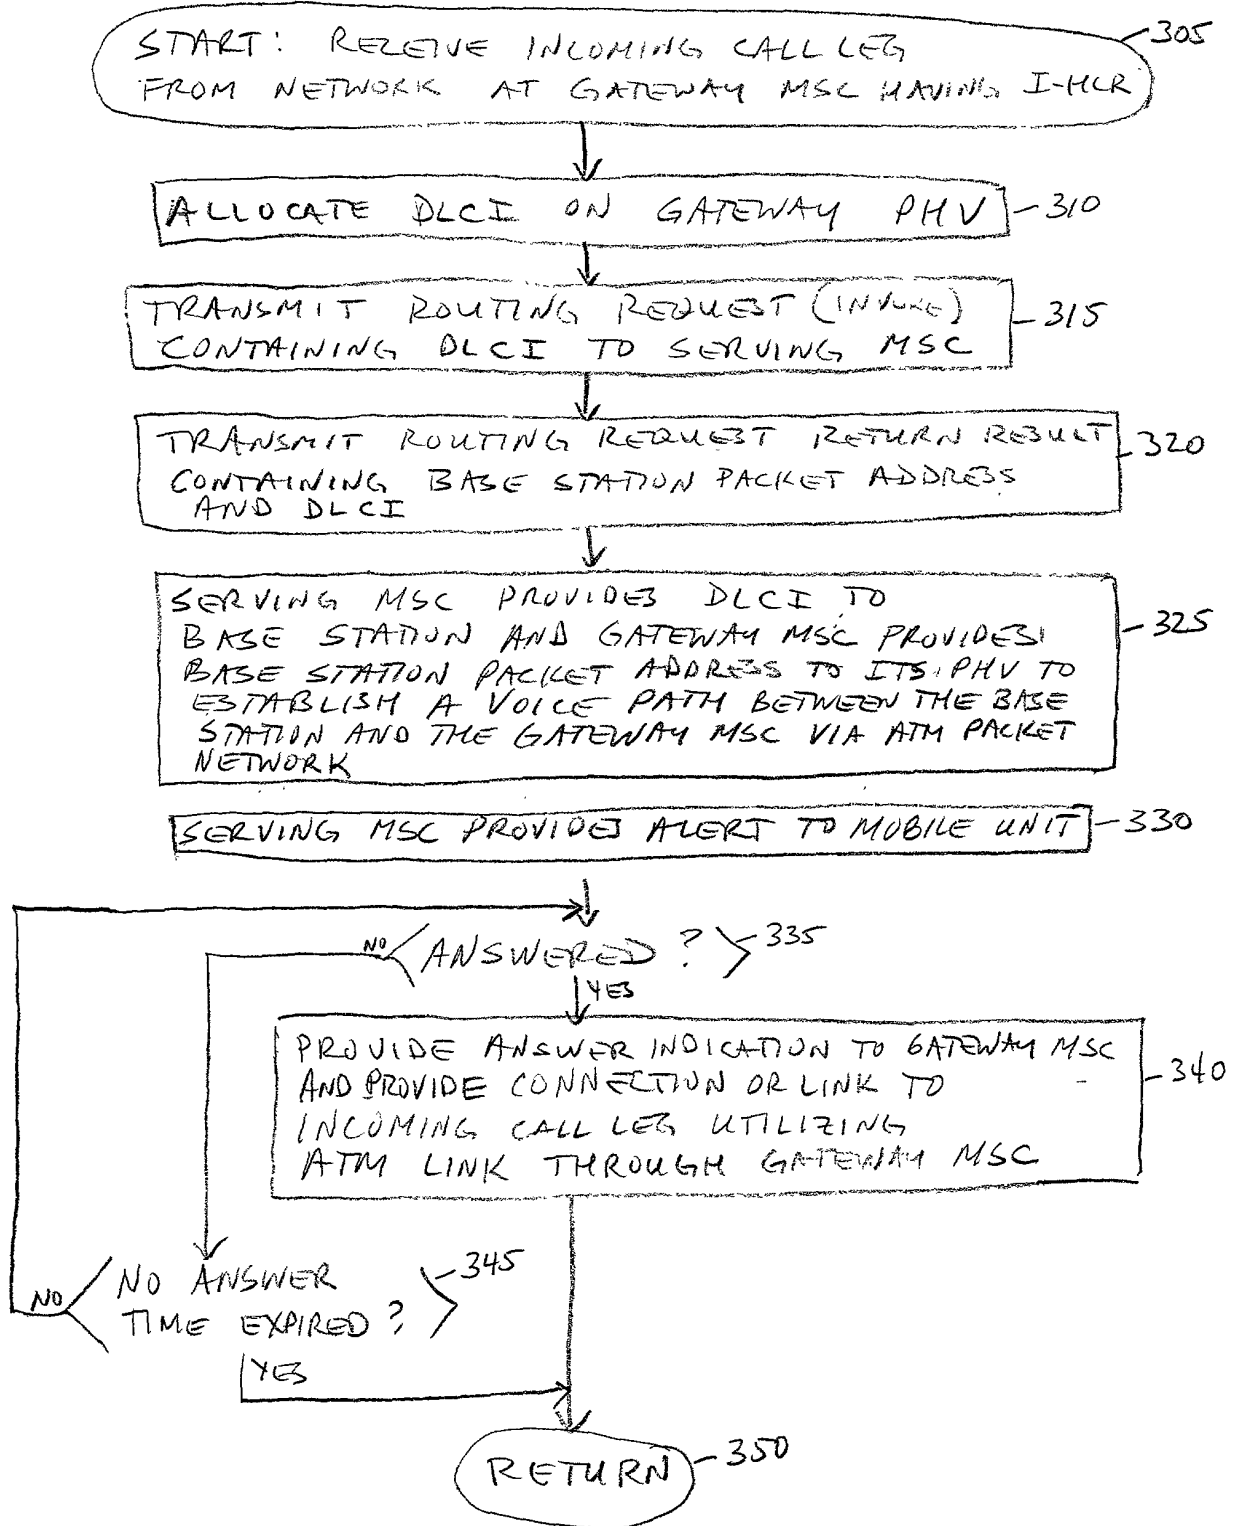 START: RECEIVE INCOMING CALL LEG
305
FROM NETWORK AT GATEWAY MSC HAVING I-HLR
ALLOCATE DLCI ON GATEWAY PHV
310
TRANSMIT ROUTING REQUEST (INVOKE)
315
CONTAINING DLCI TO SERVING MSC
TRANSMIT ROUTING REQUEST RETURN RESULT
320
CONTAINING BASE STATION PACKET ADDRESS
AND DLCI
SERVING MSC PROVIDES DLCI TO
BASE STATION AND GATEWAY MSC PROVIDES
325
BASE STATION PACKET ADDRESS TO ITS PHV TO
ESTABLISH A VOICE PATH BETWEEN THE BASE
STATION AND THE GATEWAY MSC VIA ATM PACKET
NETWORK
SERVING MSC PROVIDES ALERT TO MOBILE UNIT
330
NO
ANSWERED ?
335
YES
PROVIDE ANSWER INDICATION TO GATEWAY MSC
340
AND PROVIDE CONNECTION OR LINK TO
INCOMING CALL LEG UTILIZING
ATM LINK THROUGH GATEWAY MSC
NO ANSWER
345
NO
TIME EXPIRED ?
YES
RETURN
350